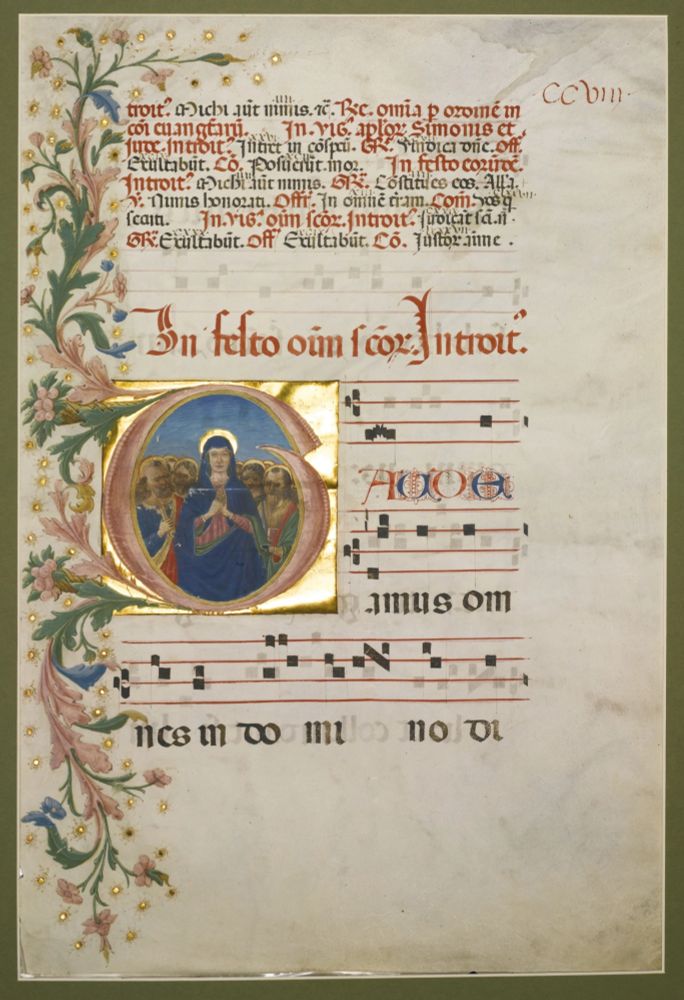 CCVIII
troit⁹. Michi aūt nimis. ⁊c̄. Re. om̄ia p ordinē in
cōi euangtarū. In. vig̓. apl̓or̨. Simonis et
Jude. Introit⁹. Intret in cōspcū. GR̄. Vindica dn̄e. Off.
Exultabūt. Cō. Posuerūt mor. In festo eorūdē.
Introit⁹. Michi aūt nimis. GR̄. Cōstitues eos. All'a.
V. Nimis honorati. Offř. In omnē t̄ram. Com̄. Vos q̇
secuti. In. vig̓. oīm scōr̨. Introit⁹. Judicāt sc̄i.
GR̄. Exultabūt. Off. Exultabūt. Cō. Justor̨ anime.
In festo oīm scōr̨. Introit⁹.
GAUDE
amus om
nes in do mi no di